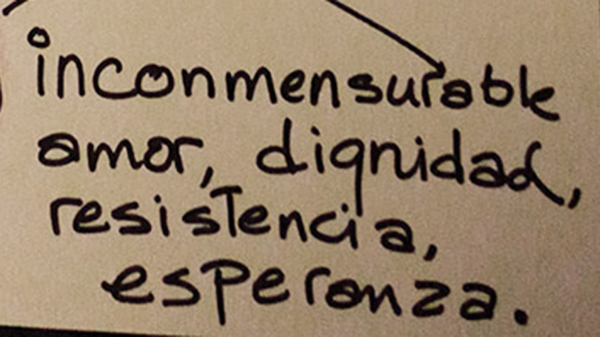 inconmensurable
amor, dignidad,
resistencia,
esperanza.